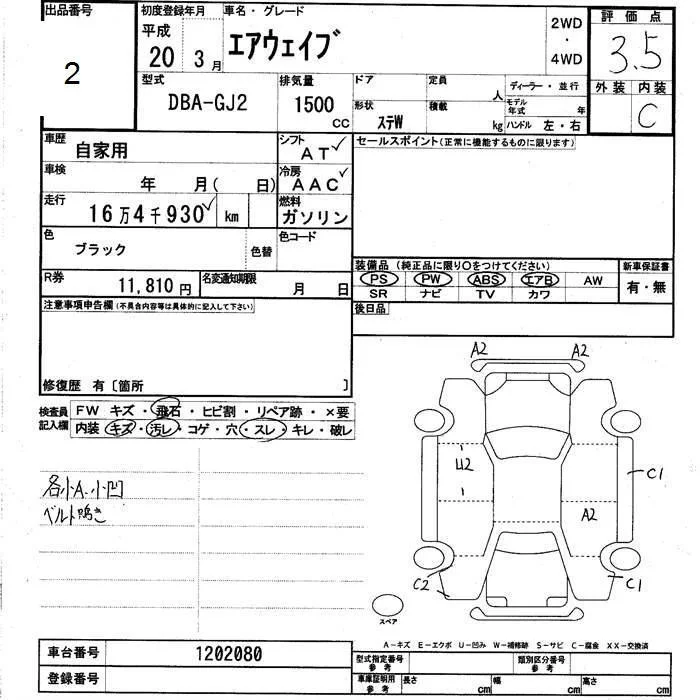 出品番号
2
初度登録年月
平成
20 3月
車名・グレード
エアウェイブ
2WD
・
4WD
評価点
3.5
外装 内装
C
型式
DBA-GJ2
排気量
1500
CC
ドア
定員
人
形状
ステW
積載
kg
ディーラー・並行
モデル年式 年
ハンドル 左・右
車歴
自家用
シフト
AT✓
車検
年 月( 日)
冷房
AAC✓
走行
16万4千930✓ km
燃料
ガソリン
色
ブラック
色替
色コード
R券
11,810円
名変通知期限
月 日
セールスポイント(正常に機能するものに限ります)
装備品 (純正品に限り○をつけてください)
新車保証書
PS PW ABS エアB AW
SR ナビ TV カワ
有・無
後日品
注意事項申告欄(不具合内容等は具体的に記入して下さい)
修復歴 有〔箇所 〕
検査員
記入欄
FW キズ・飛石・ヒビ割・リペア跡・×要
内装 キズ・汚レ・コゲ・穴・スレ・キレ・破レ
各小A.小凹
ベルト鳴き
A2 A2
U2
C1
A2
C2 C1
スペア
A-キズ E-エクボ U-凹み W-補修跡 S-サビ C-腐食 XX-交換済
車台番号
1202080
登録番号
型式指定番号
参考
類別区分番号
参考
車庫証明用
参考
長さ cm
幅 cm
高さ cm